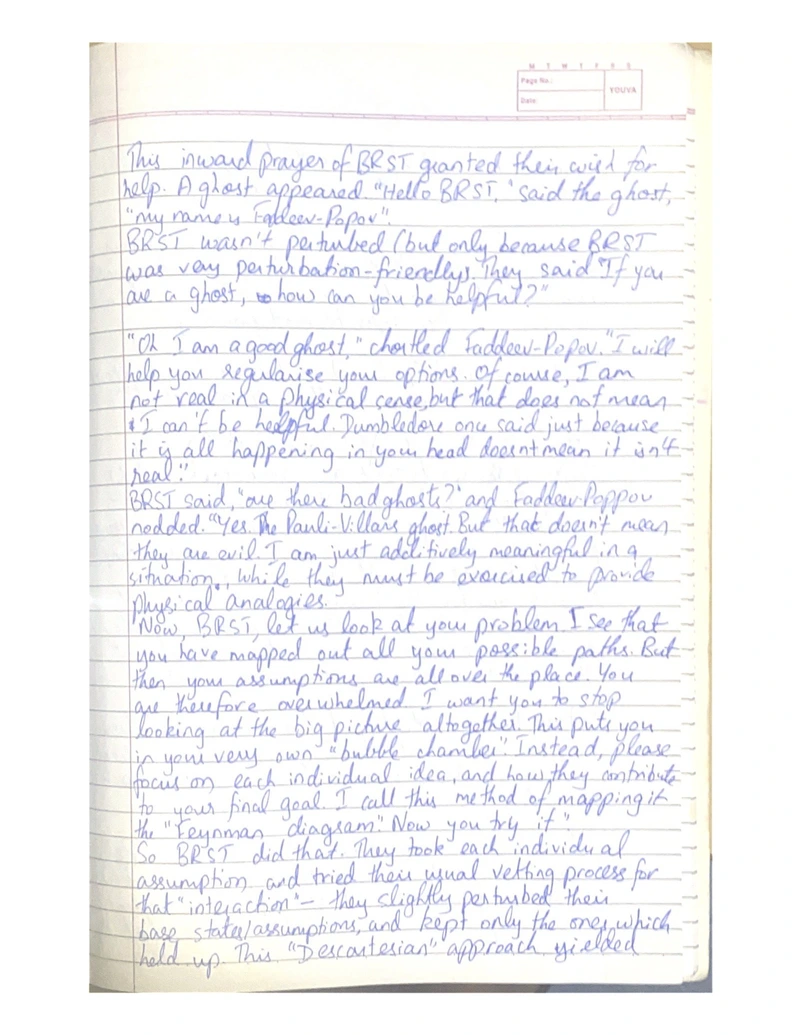 M T W T F S S
Page No.:
YOUVA
Date:
This inward prayer of BRST granted their wish for
help. A ghost appeared. "Hello BRST,' said the ghost,
"my name is Faddeev-Popov".
BRST wasn't perturbed (but only because BRST
was very perturbation-friendly). They said "If you
are a ghost, how can you be helpful?"
"Oh I am a good ghost," chortled Faddeev-Popov. "I will
help you regularise your options. Of course, I am
not real in a physical sense, but that does not mean
I can't be helpful. Dumbledore once said just because
it is all happening in your head doesnt mean it isn't
real."
BRST said, "are there bad ghosts?" and Faddeev-Poppov
nodded. "Yes. The Pauli-Villars ghost. But that doesn't mean
they are evil. I am just additively meaningful in a
situation, while they must be exorcised to provide
physical analogies.
Now, BRST, let us look at your problem. I see that
you have mapped out all your possible paths. But
then your assumptions are all over the place. You
are therefore overwhelmed. I want you to stop
looking at the big picture altogether. This puts you
in your very own "bubble chamber". Instead, please
focus on each individual idea, and how they contribute
to your final goal. I call this method of mapping it
the "Feynman diagram". Now you try it".
So BRST did that. They took each individual
assumption and tried their usual vetting process for
that "interaction" - they slightly perturbed their
base states/assumptions, and kept only the ones which
held up. This "Descartesian" approach yielded